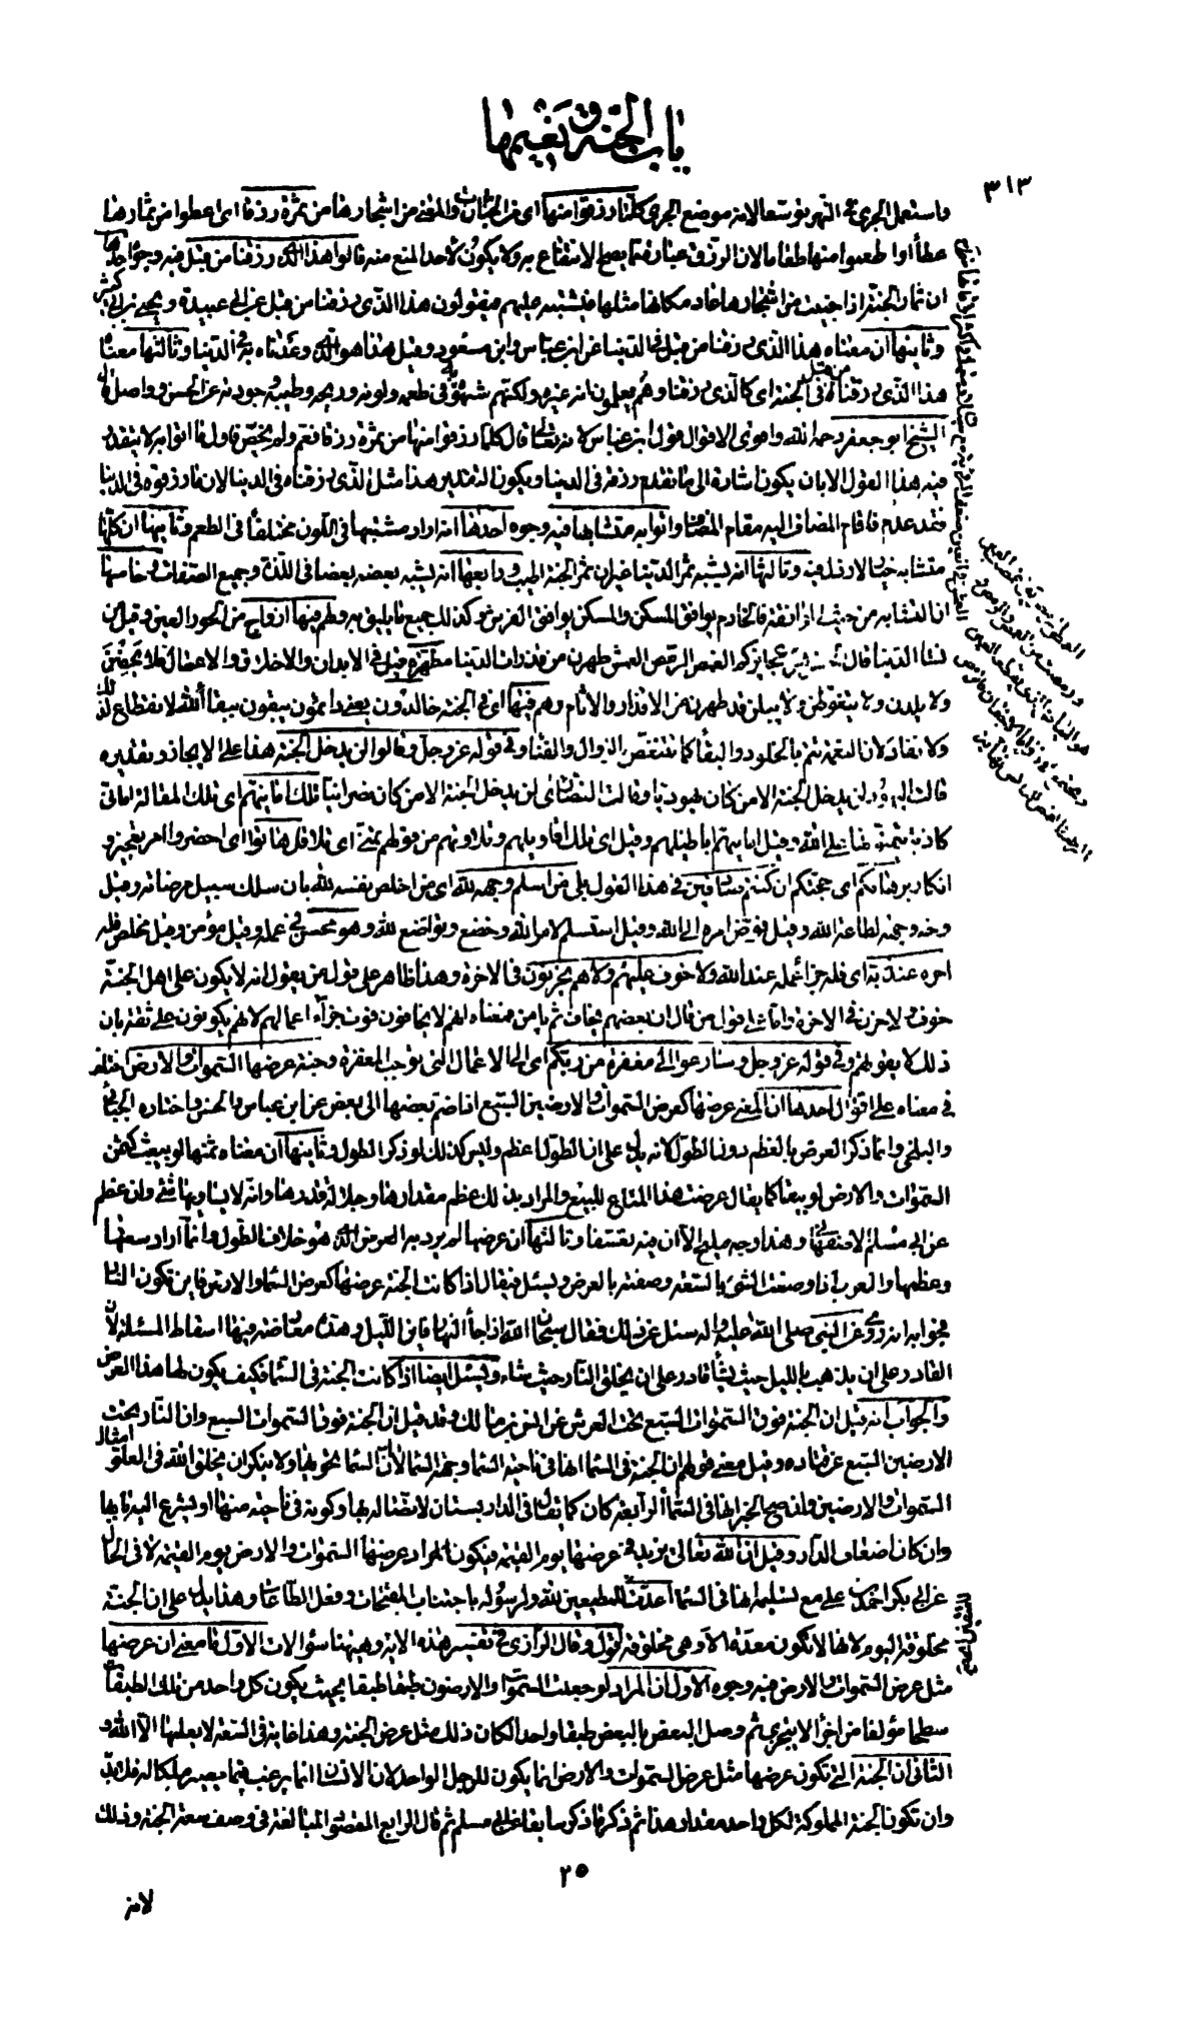 باب الجنة ونعيمها
٣١٣
واستعمل الجري في النهر توسعا لانه موضع الجري كلما رزقوا منها اي من الجنات والمعنى من اشجارها من ثمرة رزقا اي اعطوا من ثمارها
عطاء او اطعموا منها طعاما لان الرزق عبارة عما يصح الانتفاع به ولا يكون لاحد المنع منه قالوا هذا الذي رزقنا من قبل فيه وجوه احدها
ان ثمار الجنة اذا جنيت من اشجارها عاد مكانها مثلها فيشتبه عليهم فيقولون هذا الذي رزقنا من قبل عن ابي عبيدة ويحيى بن ابي كثير
وثانيها ان معناه هذا الذي رزقنا من قبل في الدنيا عن ابن عباس وابن مسعود وقيل هذا هو الذي وعدنا به في الدنيا وثالثها معناه
هذا الذي رزقناه من قبل في الجنة اي كالذي رزقنا وهم يعلمون انه غيره ولكنهم شبهوه به في طعمه ولونه وريحه وطيبه وجودته عن الحسن وواصل قال
الشيخ ابو جعفر رحمه الله واقوى الاقوال قول ابن عباس لانه تعالى قال كلما رزقوا منها من ثمرة رزقا فعم ولم يخص فاول ما اتوا به لا يتقدر
فيه هذا القول الا بان يكون اشارة الى ما تقدم رزقه في الدنيا ويكون التقدير هذا مثل الذي رزقناه في الدنيا لان ما رزقوه في الدنيا
فقد عدم فاقام المضاف اليه مقام المضاف واتوا به متشابها فيه وجوه احدها انه اراد مشتبها في اللون مختلفا في الطعم وثانيها ان كلها
متشابه خيار لا رذل فيه وثالثها انه يشبه ثمر الدنيا غير ان ثمر الجنة اطيب ورابعها انه يشبه بعضه بعضا في اللذة وجميع الصفات وخامسها
ان التشابه من حيث الموافقة فالخادم يوافق المسكن والمسكن يوافق الفرش وكذلك جميع ما يليق به ولهم فيها ازواج من الحور العين وقيل من
نساء الدنيا قال الحسن هن عجائزكم الغمص الرمص العمش طهرن من قذرات الدنيا مطهرة قيل في الابدان والاخلاق والاعمال فلا يحضن
ولا يلدن ولا يتغوطن ولا يبلن قد طهرن من الاقذار والاثام وهم فيها اي في الجنة خالدون يعني دائمون يبقون ببقاء الله لا انقطاع لذلك
ولا نفاد لان النعمة تتم بالخلود والبقاء كما تتنغص بالزوال والفناء وفي قوله عز وجل وقالوا لن يدخل الجنة هذا على الايجاز وتقديره
قالت اليهود لن يدخل الجنة الا من كان يهوديا وقالت النصارى لن يدخل الجنة الا من كان نصرانيا تلك امانيهم اي تلك المقالة اماني
كاذبة يتمنونها على الله وقيل امانيهم اباطيلهم وقيل اي تلك اقاويلهم وتلاوتهم من قولهم تمنى اي تلا قل هاتوا اي احضروا امر تعجيز و
انكار برهانكم اي حجتكم ان كنتم صادقين في هذا القول بلى من اسلم وجهه لله اي من اخلص نفسه لله بان سلك سبيل مرضاته وقيل
وجه وجهه لطاعة الله وقيل فوض امره الى الله وقيل استسلم لامر الله وخضع وتواضع لله وهو محسن في عمله وقيل مؤمن وقيل مخلص فله
اجره عند ربه اي فله جزاء عمله عند الله ولا خوف عليهم ولا هم يحزنون في الاخرة وهذا ظاهر على قول من يقول انه لا يكون على اهل الجنة
خوف ولا حزن في الاخرة واما على قول من قال ان بعضهم يخاف ثم يامن فمعناه انهم لا يخافون فوت جزاء اعمالهم لانهم يكونون على ثقة بان
ذلك لا يفوتهم وفي قوله عز وجل وسارعوا الى مغفرة من ربكم اي الى الاعمال التي توجب المغفرة وجنة عرضها السموات والارض اختلف
في معناه على اقوال احدها ان المعنى عرضها كعرض السموات والارضين السبع اذا ضم بعضها الى بعض عن ابن عباس والحسن واختاره الجبائي
والبلخي وانما ذكر العرض بالعظم دون الطول لانه يدل على ان الطول اعظم وليس كذلك لو ذكر الطول وثانيها ان معناه ثمنها لو بيعت كثمن
السموات والارض لو بيعتا كما يقال عرضت هذا المتاع للبيع والمراد بذلك عظم مقدارها وجلالة قدرها وانه لا يساويها شيء وان عظم
عن ابي مسلم الاصفهاني وهذا وجه مليح الا ان فيه تعسفا وثالثها ان عرضها لم يرد به العرض الذي هو خلاف الطول وانما اراد سعتها
وعظمها والعرب اذا وصفت الشيء بالسعة وصفته بالعرض ويسئل فيقال اذا كانت الجنة عرضها كعرض السماء والارض فاين تكون النار
فجوابه انه روي عن النبي صلى الله عليه واله سئل عن ذلك فقال سبحان الله اذا جاء النهار فاين الليل وهذه معارضة فيها اسقاط المسئلة لان
القادر على ان يذهب بالليل حيث يشاء قادر على ان يخلق النار حيث شاء ويسئل ايضا اذا كانت الجنة في السماء فكيف يكون لها هذا العرض
والجواب انه قيل ان الجنة فوق السموات السبع تحت العرش عن انس بن مالك وقد قيل ان الجنة فوق السموات السبع وان النار تحت
الارضين السبع عن قتادة وقيل معنى قولهم ان الجنة في السماء انها في ناحية السماء وجهة السماء لا ان السماء تحويها ولا ينكر ان يخلق الله في العلو امثال
السموات والارضين وان صح الخبر انها في السماء الرابعة كان كما يقال في الدار بستان لاتصاله بها وكونه في ناحية منها او يشرع اليه بابها
وان كان اضعاف الدار وقيل ان الله تعالى يزيد في عرضها يوم القيمة فيكون المراد عرضها السموات والارض يوم القيمة لا في الحال
عن ابي بكر احمد بن علي مع تسليمه انها في السماء اعدت للمطيعين لله ولرسوله باجتناب المقبحات وفعل الطاعات وهذا يدل على ان الجنة
مخلوقة اليوم لانها لا تكون معدة الا وهي مخلوقة اقول وقال الرازي في تفسير هذه الاية وههنا سؤالات الاول ما معنى ان عرضها
مثل عرض السموات والارض فيه وجوه الاول ان المراد لو جعلت السموات والارضون طبقا طبقا بحيث يكون كل واحد من تلك الطبقات
سطحا مؤلفا من اجزاء لا يتجزى ثم وصل البعض بالبعض طبقا واحدا لكان ذلك مثل عرض الجنة وهذا غاية في السعة لا يعلمها الا الله و
الثاني ان الجنة التي تكون عرضها مثل عرض السموات والارض انما يكون للرجل الواحد لان الانسان انما يرغب فيما يصير ملكا له فلا بد
وان تكون الجنة المملوكة لكل واحد مقدار هذا ثم ذكر ما ذكر سابقا عن ابي مسلم ثم قال الرابع المقصود المبالغة في وصف سعة الجنة وذلك
٢٥
لانه